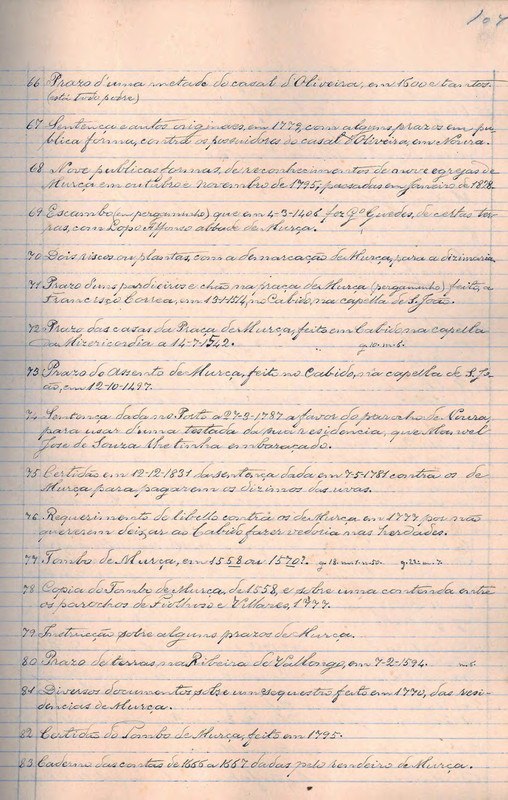 107
66 Prazo d'uma metade do casal d'Oliveira, em 1600 e tantos.
(está todo podre)
67 Sentença e autos originaes, em 1779, com alguns prazos em pu-
blica forma, contra os possuidores do casal d'Oliveira, em Noura.
68 Nove publicas formas, de reconhecimentos de nove egrejas de
Murça em outubro e novembro de 1795, passadas em Janeiro de 1828.
69 Escambo (em pergaminho) que em 4-3-1406 fez Gº Guedes, de certas ter-
ras, com Lopo Affonso abbade de Murça.
70 Dois riscos ou plantas, com a demarcação da Murça, para a dizimaria.
71 Prazo d'uns pardieiros e chão na praça da Murça (pergaminho) feito, a
Francisco Correa, em no Cabido, na capella de S. João.
72 Prazo das casas da Praça de Murça, feito em Cabido, na capella
da Mizericordia a 14-7-1542.
73 Prazo do Assento de Murça, feito no Cabido, na capella de S. Jo-
ão, em 12-10-1497.
74 Sentença dada no Porto a 27-9-1787 a favor do parocho de Noura,
para usar d'uma testada da sua residencia, que Manoel
José de Souza lhe tinha embaraçado.
75 Certidão em 12-12-1831 da sentença dada em 7-5-1781 contra os de
Murça para pagarem os dizimos das uvas.
76 Requerimento de libello contra os de Murça em 1777 por não
quererem deixar ao Cabido fazer vedoria nas herdades.
77 Tombo de Murça, em 1558 ou 1570?
78 Copia do Tombo de Murça, de 1558, e sobre uma contenda entre
os parochos de Fiolhoso e Villares, 1777.
79 Instrucção sobre alguns prazos de Murça.
80 Prazo de terras, na Ribeira de Vallongo, em 7-2-1594.
81 Diversos documentos sobre um sequestro feito em 1770, das resi-
dencias de Murça.
82 Certidão do Tombo de Murça, feito em 1795.
83 Caderno das contas de 1666 a 1667 dadas pelo rendeiro de Murça.